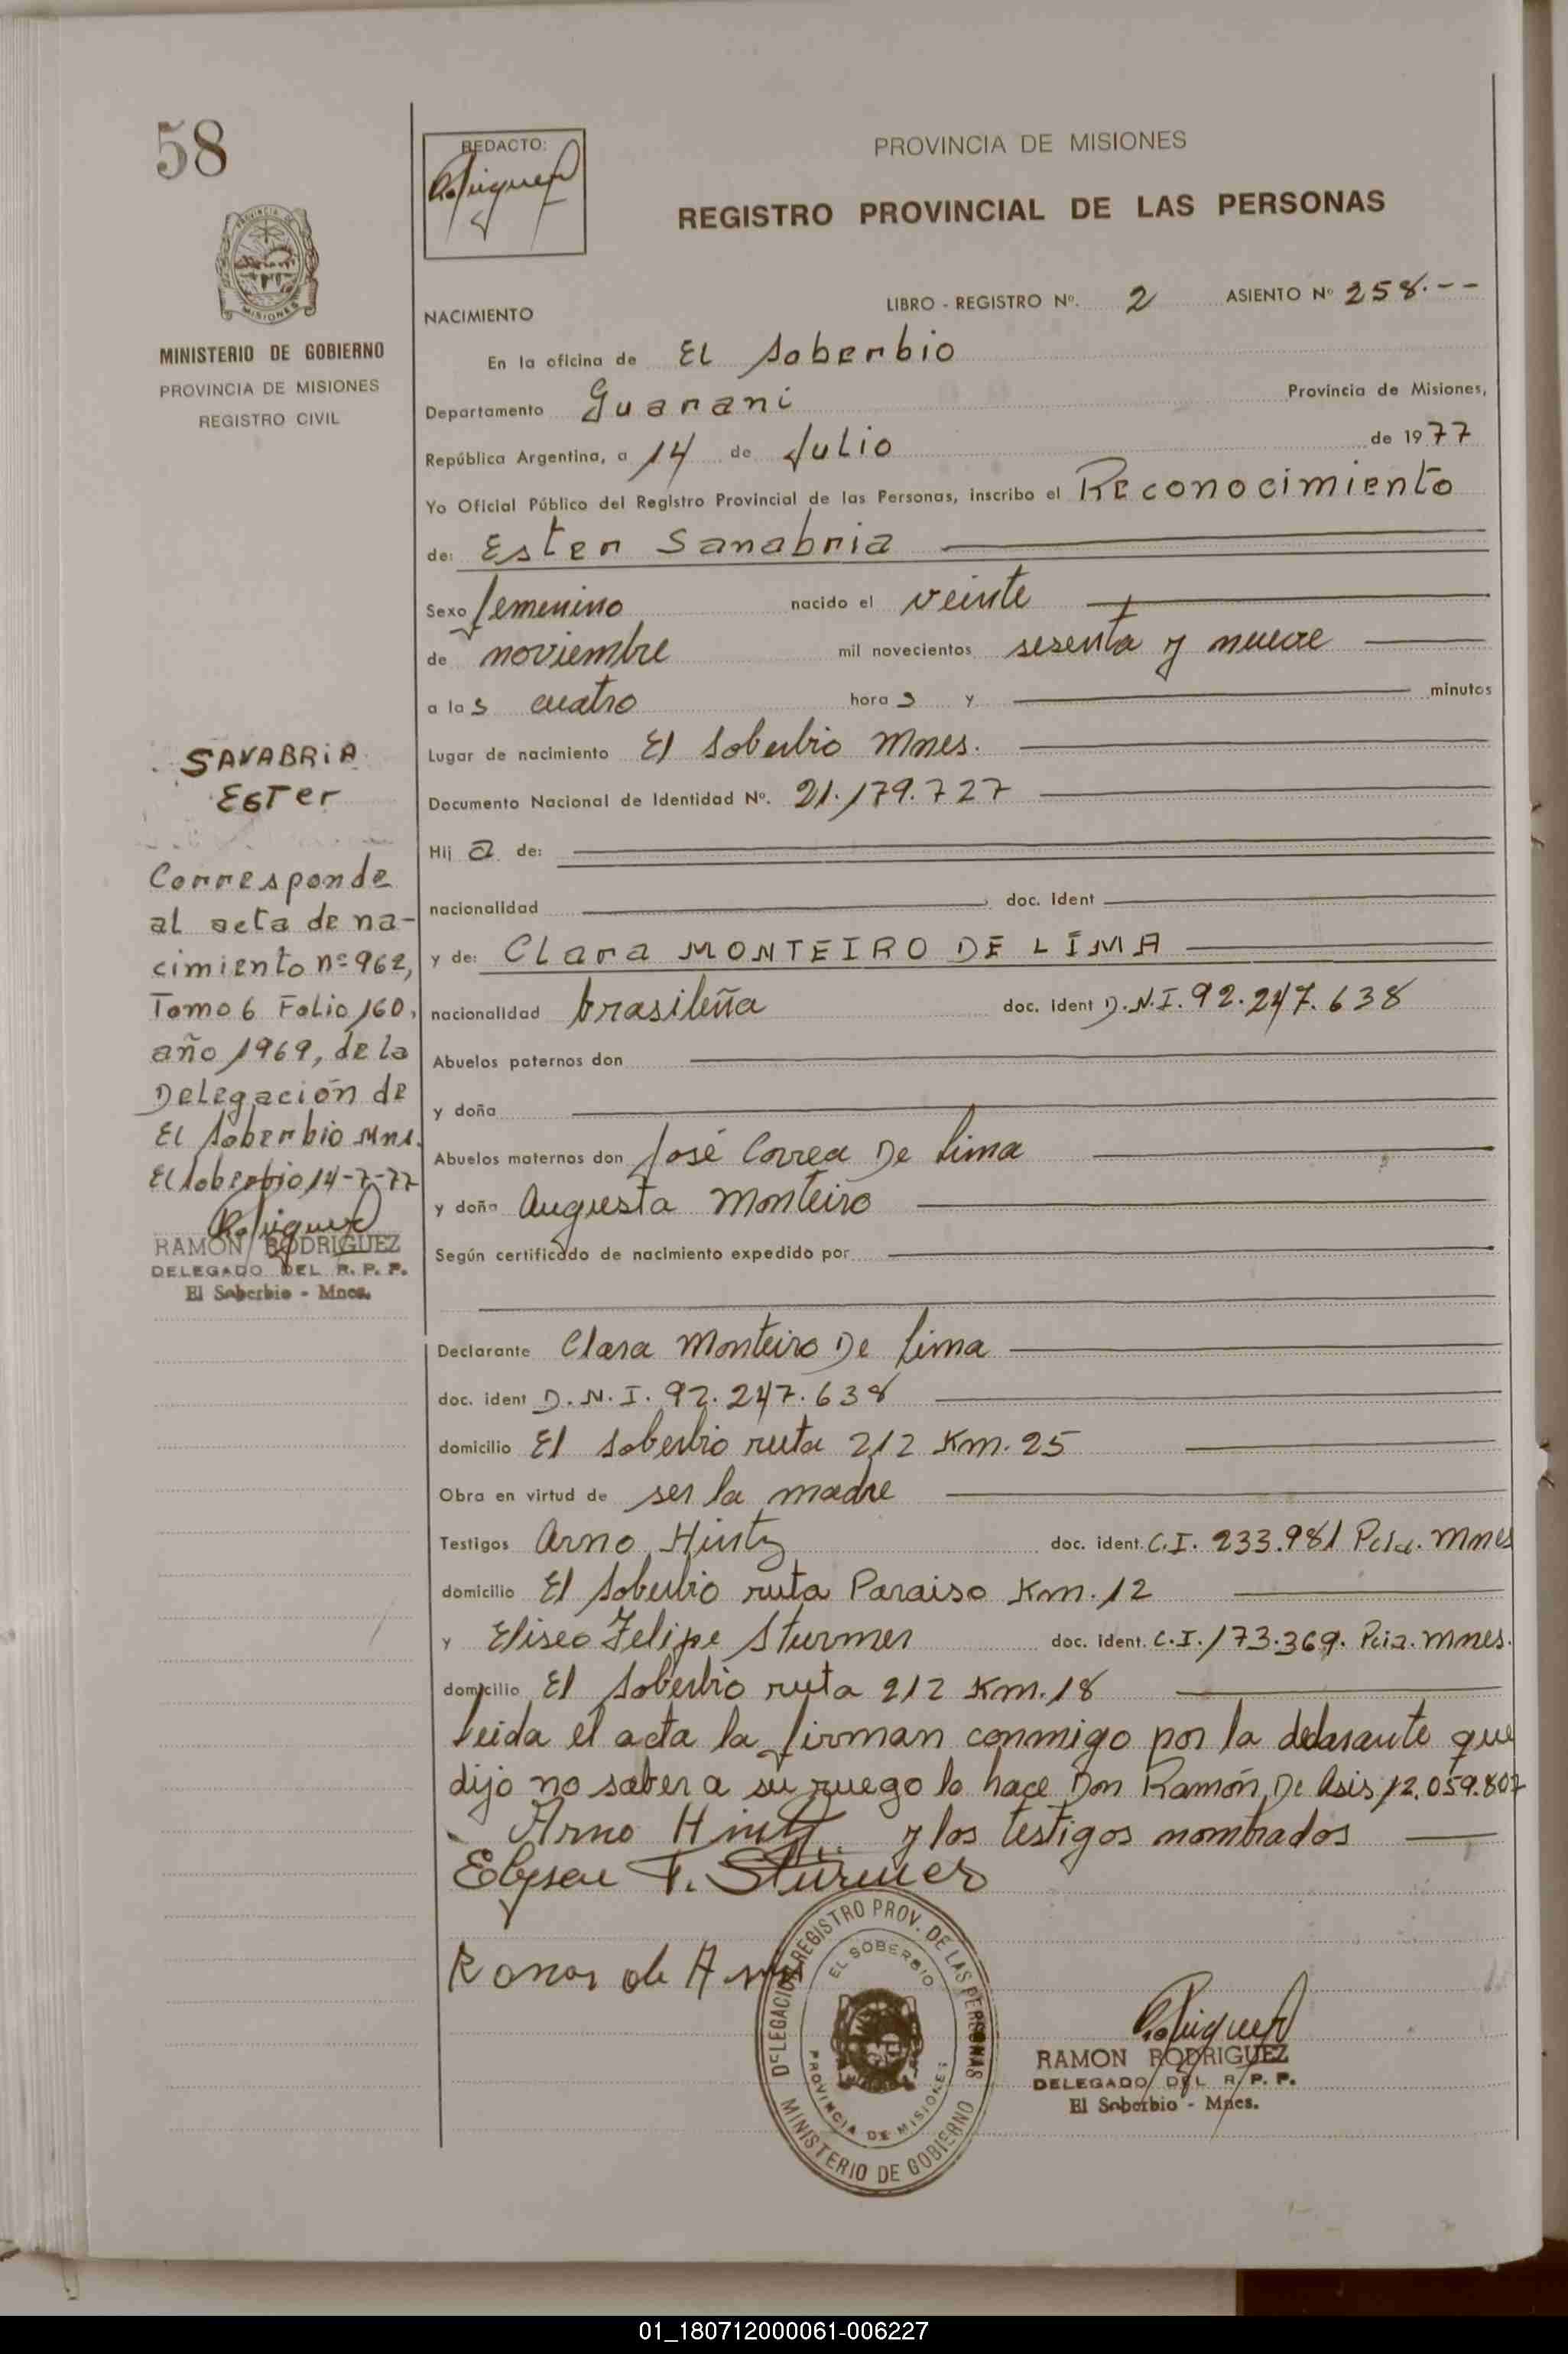 58
REDACTO:
PROVINCIA DE MISIONES
REGISTRO PROVINCIAL DE LAS PERSONAS
LIBRO - REGISTRO Nº. 2 ASIENTO Nº 258.--
NACIMIENTO
MINISTERIO DE GOBIERNO
PROVINCIA DE MISIONES
REGISTRO CIVIL
En la oficina de El Soberbio
Departamento Guarani Provincia de Misiones,
República Argentina, a 14 de Julio de 1977
Yo Oficial Público del Registro Provincial de las Personas, inscribo el Reconocimiento
de: Ester Sanabria
Sexo femenino nacido el veinte
de noviembre mil novecientos sesenta y nueve
a las cuatro horas y minutos
Lugar de nacimiento El Soberbio Mnes.
Documento Nacional de Identidad Nº. 21.179.727
Hija de:
nacionalidad doc. ident
y de: Clara MONTEIRO DE LIMA
nacionalidad brasileña doc. ident D.N.I. 92.247.638
Abuelos paternos don
y doña
Abuelos maternos don José Correa De Lima
y doña Augusta Monteiro
Según certificado de nacimiento expedido por
SANABRIA
ESTer
Corresponde
al acta de na-
cimiento nº 962,
Tomo 6 Folio 160,
año 1969, de la
Delegación de
El Soberbio Mns.
El Soberbio 14-7-77
RAMON RODRIGUEZ
DELEGADO DEL R. P. P.
El Soberbio - Mnes.
Declarante Clara Monteiro De Lima
doc. ident D.N.I. 92.247.638
domicilio El Soberbio ruta 212 Km. 25
Obra en virtud de ser la madre
Testigos Arno Hintz doc. ident. C.I. 233.981 Pcia. Mnes
domicilio El Soberbio ruta Paraiso Km. 12
y Eliseo Felipe Sturmer doc. ident. C.I. 173.369. Pcia. Mnes.
domicilio El Soberbio ruta 212 Km. 18
leida el acta la firman conmigo por la declarante que
dijo no saber a su ruego lo hace Don Ramón De Asis 12.059.807
Arno Hintz y los testigos nombrados
F. Sturmer
de
DELEGACION REGISTRO PROV. DE LAS PERSONAS
EL SOBERBIO
PROVINCIA DE MISIONES
MINISTERIO DE GOBIERNO
RAMON RODRIGUEZ
DELEGADO DEL R. P. P.
El Soberbio - Mnes.
01_180712000061-006227